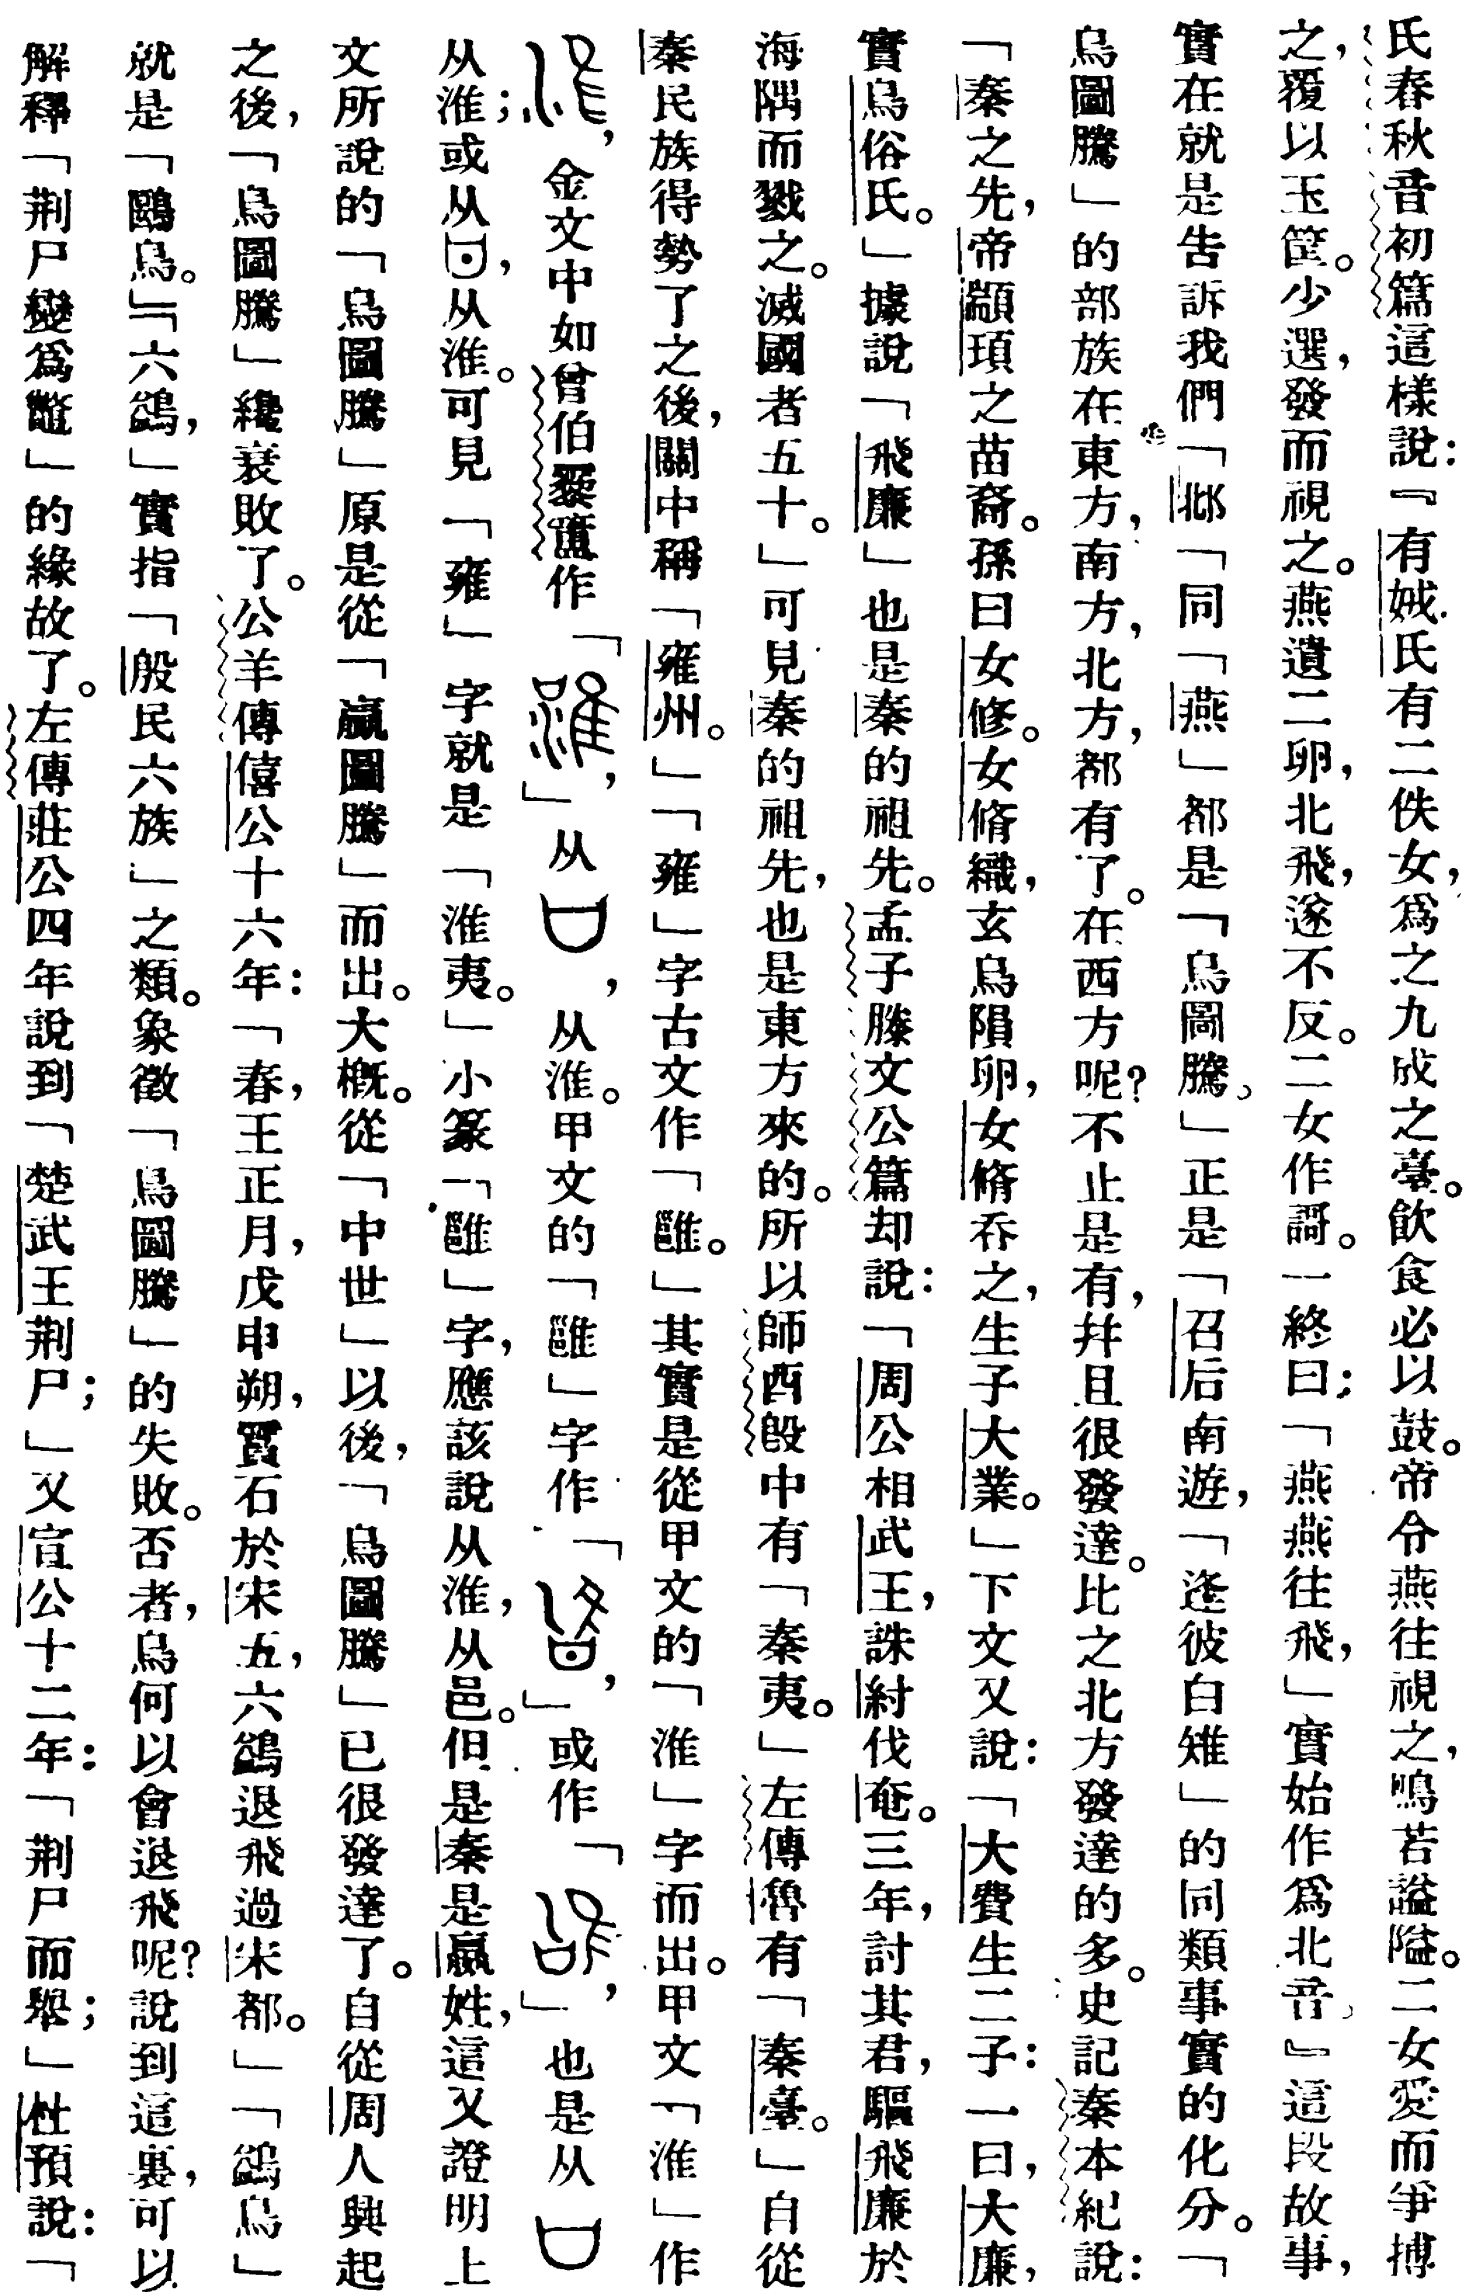 氏春秋音初篇這樣說：『有娀氏有二佚女，爲之九成之臺。飲食必以鼓。帝令燕往視之，鳴若謚隘。二女愛而爭搏
之，覆以玉筐。少選，發而視之。燕遺二卵，北飛，遂不反。二女作謌。一終曰：「燕燕往飛，」實始作爲北音。』這段故事，
實在就是告訴我們「邶「同「燕」都是「鳥圖騰。」正是「召后南遊，「逢彼白雉」的同類事實的化分。「
鳥圖騰」的部族在東方，南方，北方，都有了。在西方呢？不止是有，幷且很發達。比之北方發達的多。史記秦本紀說：
「秦之先，帝顓頊之苗裔。孫曰女修。女脩織，玄鳥隕卵，女脩吞之，生子大業。」下文又說：「大費生二子：一曰，大廉，
實鳥俗氏。」據說「飛廉」也是秦的祖先。孟子滕文公篇却說：「周公相武王，誅紂伐奄。三年，討其君，驅飛廉於
海隅而戮之。滅國者五十。」可見秦的祖先，也是東方來的。所以師酉𣪘中有「秦夷。」左傳魯有「秦臺。」自從
秦民族得勢了之後，關中稱「雍州。」「雍」字古文作「雝。」其實是從甲文的「淮」字而出。甲文「淮」作
，金文中如曾伯霥簠作「，」从，从淮。甲文的「雝」字作「，」或作「，」也是从
从淮；或从，从淮。可見「雍」字就是「淮夷。」小篆「雝」字，應該說从淮，从邑。但是秦是嬴姓，這又證明上
文所說的「鳥圖騰」原是從「嬴圖騰」而出。大槪。從「中世」以後，「鳥圖騰」已很發達了。自從周人興起
之後，「鳥圖騰」纔衰敗了。公羊傳僖公十六年：「春，王正月，戊申朔，霣石於宋五，六鷁退飛過宋都。」「鷁鳥」
就是「鷗鳥。」「六鷁，」實指「殷民六族」之類。象徵「鳥圖騰」的失敗。否者，鳥何以會退飛呢？說到這裏，可以
解釋「荆尸變爲鼈」的緣故了。左傳莊公四年說到「楚武王荆尸；」又宣公十二年：「荆尸而舉；」杜預說：「